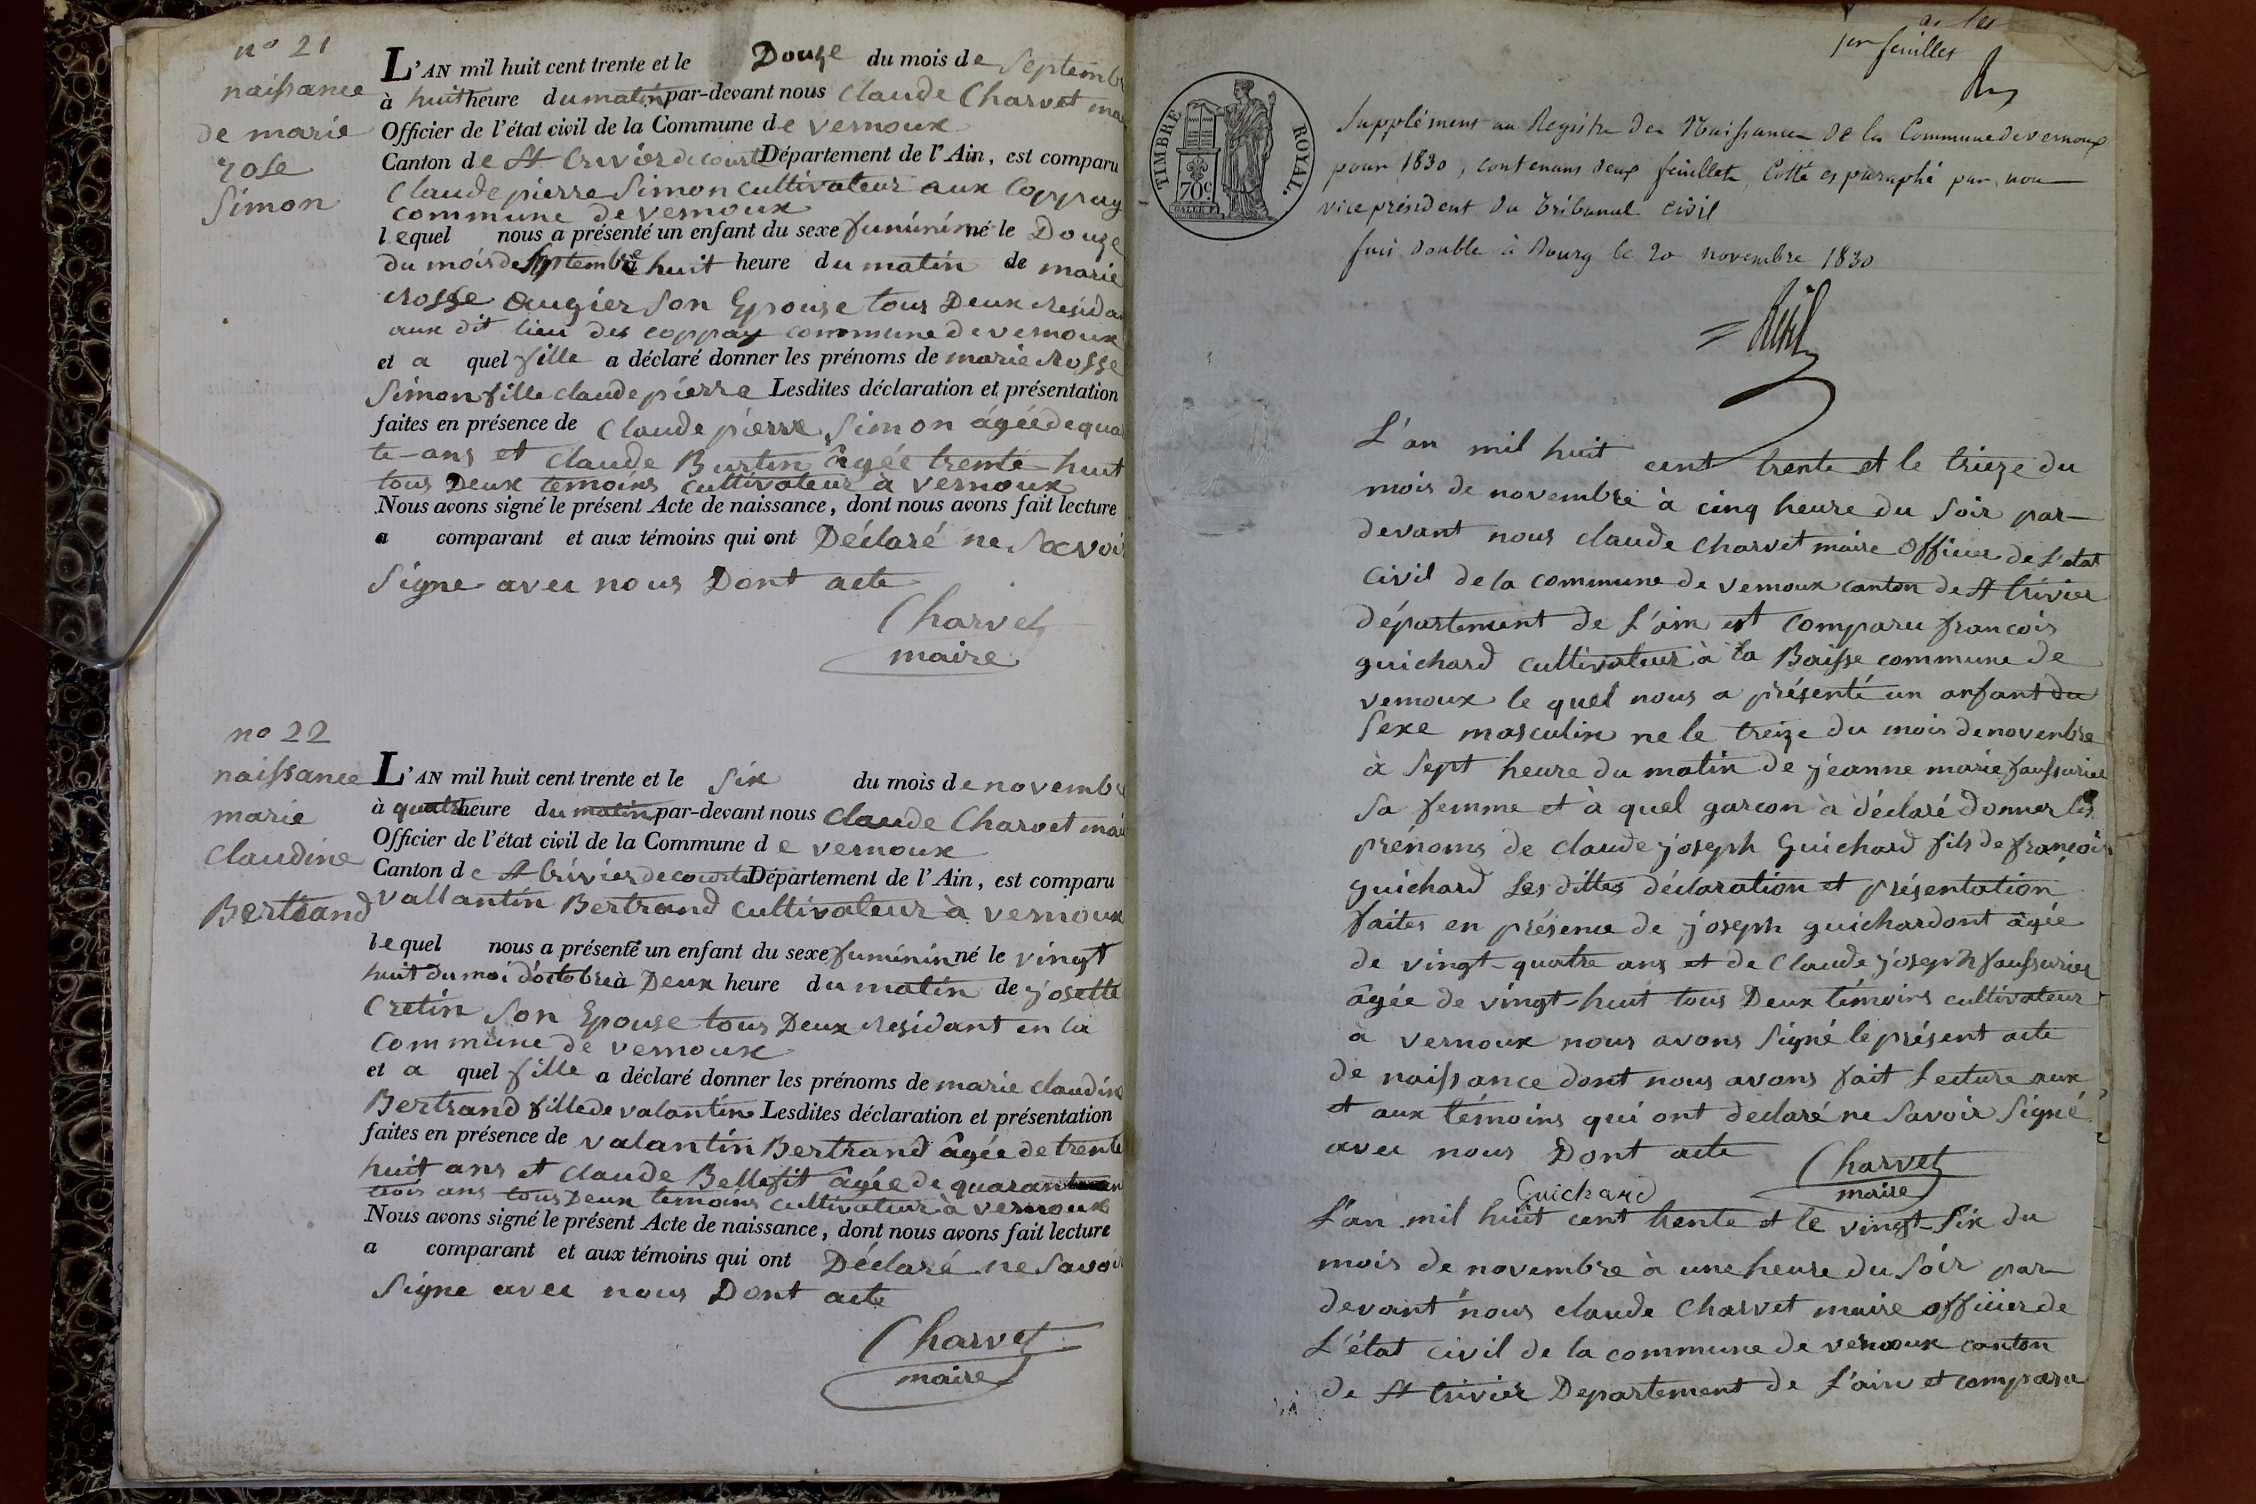 nº 21
naissance
de marie
rose
Simon
L'AN mil huit cent trente et le Douze du mois de Septemb
à huit heure du matin par-devant nous Claude Charvet mai
Officier de l'état civil de la Commune de vernoux
Canton de St trivier de court Département de l'Ain, est comparu
Claude pierre Simon cultivateur aux Coppay
commune de vernoux
lequel nous a présenté un enfant du sexe fuminin né le Douze
du mois de Septembre à huit heure du matin de marie
Rosse augier Son Epouse tous Deux Resida
aux dit lieu des coppay commune de vernoux
et a quel fille a déclaré donner les prénoms de marie Rosse
Simon fille claude pierre Lesdites déclaration et présentation
faites en présence de Claude pierre Simon âgée de qua
te-ans et Claude Burtin âgée trente huit
tous Deux témoins cultivateur à vernoux
Nous avons signé le présent Acte de naissance, dont nous avons fait lecture
a comparant et aux témoins qui ont Déclaré ne Savoi
Signe avec nous Dont acte
Charvet
maire
nº 22
naissance
marie
Claudine
Bertrand
L'AN mil huit cent trente et le Six du mois de novemb
à quatre heure du matin par-devant nous Claude Charvet mai
Officier de l'état civil de la Commune de vernoux
Canton de St trivier de courte Département de l'Ain, est comparu
vallantin Bertrand cultivateur à vernoux
lequel nous a présenté un enfant du sexe fuminin né le vingt
huit du moi d'octobre à Deux heure du matin de josette
Cretin Son Epouse tous Deux Residant en la
Commune de vernoux
et a quel fille a déclaré donner les prénoms de marie claudine
Bertrand fille de valantin Lesdites déclaration et présentation
faites en présence de valantin Bertrand âgée de trente
huit ans et claude Bellefit âgée de quarante
trois ans tous Deux témoins cultivateur à vernoux
Nous avons signé le présent Acte de naissance, dont nous avons fait lecture
a comparant et aux témoins qui ont Déclaré ne Savoir
Signe avec nous Dont acte
Charvet
maire
1er feuillet
TIMBRE ROYAL.
70c.
Supplément au Registre des Naissances de la Commune de vernoux
pour 1830, contenant deux feuillets, Cotté et paraphé par nou
vice président du tribunal civil
fait double à Bourg le 20 novembre 1830
L'an mil huit cent trente et le trieze du
mois de novembre à cinq heure du Soir par-
devant nous claude Charvet maire Officier de L'etat
Civil de la commune de vernoux canton de St trivier
département de L'ain est comparu françois
guichard cultivateur à la Baisse commune de
vernoux le quel nous a présenté un anfant du
Sexe masculin ne le treize du mois de novembre
à Sept heure du matin de jeanne marie faussurier
Sa femme et à quel garcon à déclaré donner les
prénoms de claude joseph Guichard fils de françois
guichard Les dittes déclaration et présentation
faites en présence de joseph guichardont âgée
de vingt-quatre ans et de Claude joseph faussurier
âgée de vingt-huit tous Deux témoins cultivateur
à vernoux nous avons Signé le présent acte
de naissance dont nous avons fait Lecture aux
et aux témoins qui ont declaré ne Savoir Signé
avec nous Dont acte Charvet
Guichard maire
L'an mil huit cent trente et le vingt-Six du
mois de novembre à une heure du Soir par
devant nous claude Charvet maire officier de
L'état civil de la commune de vernoux canton
de St trivier Departement de L'ain et comparu